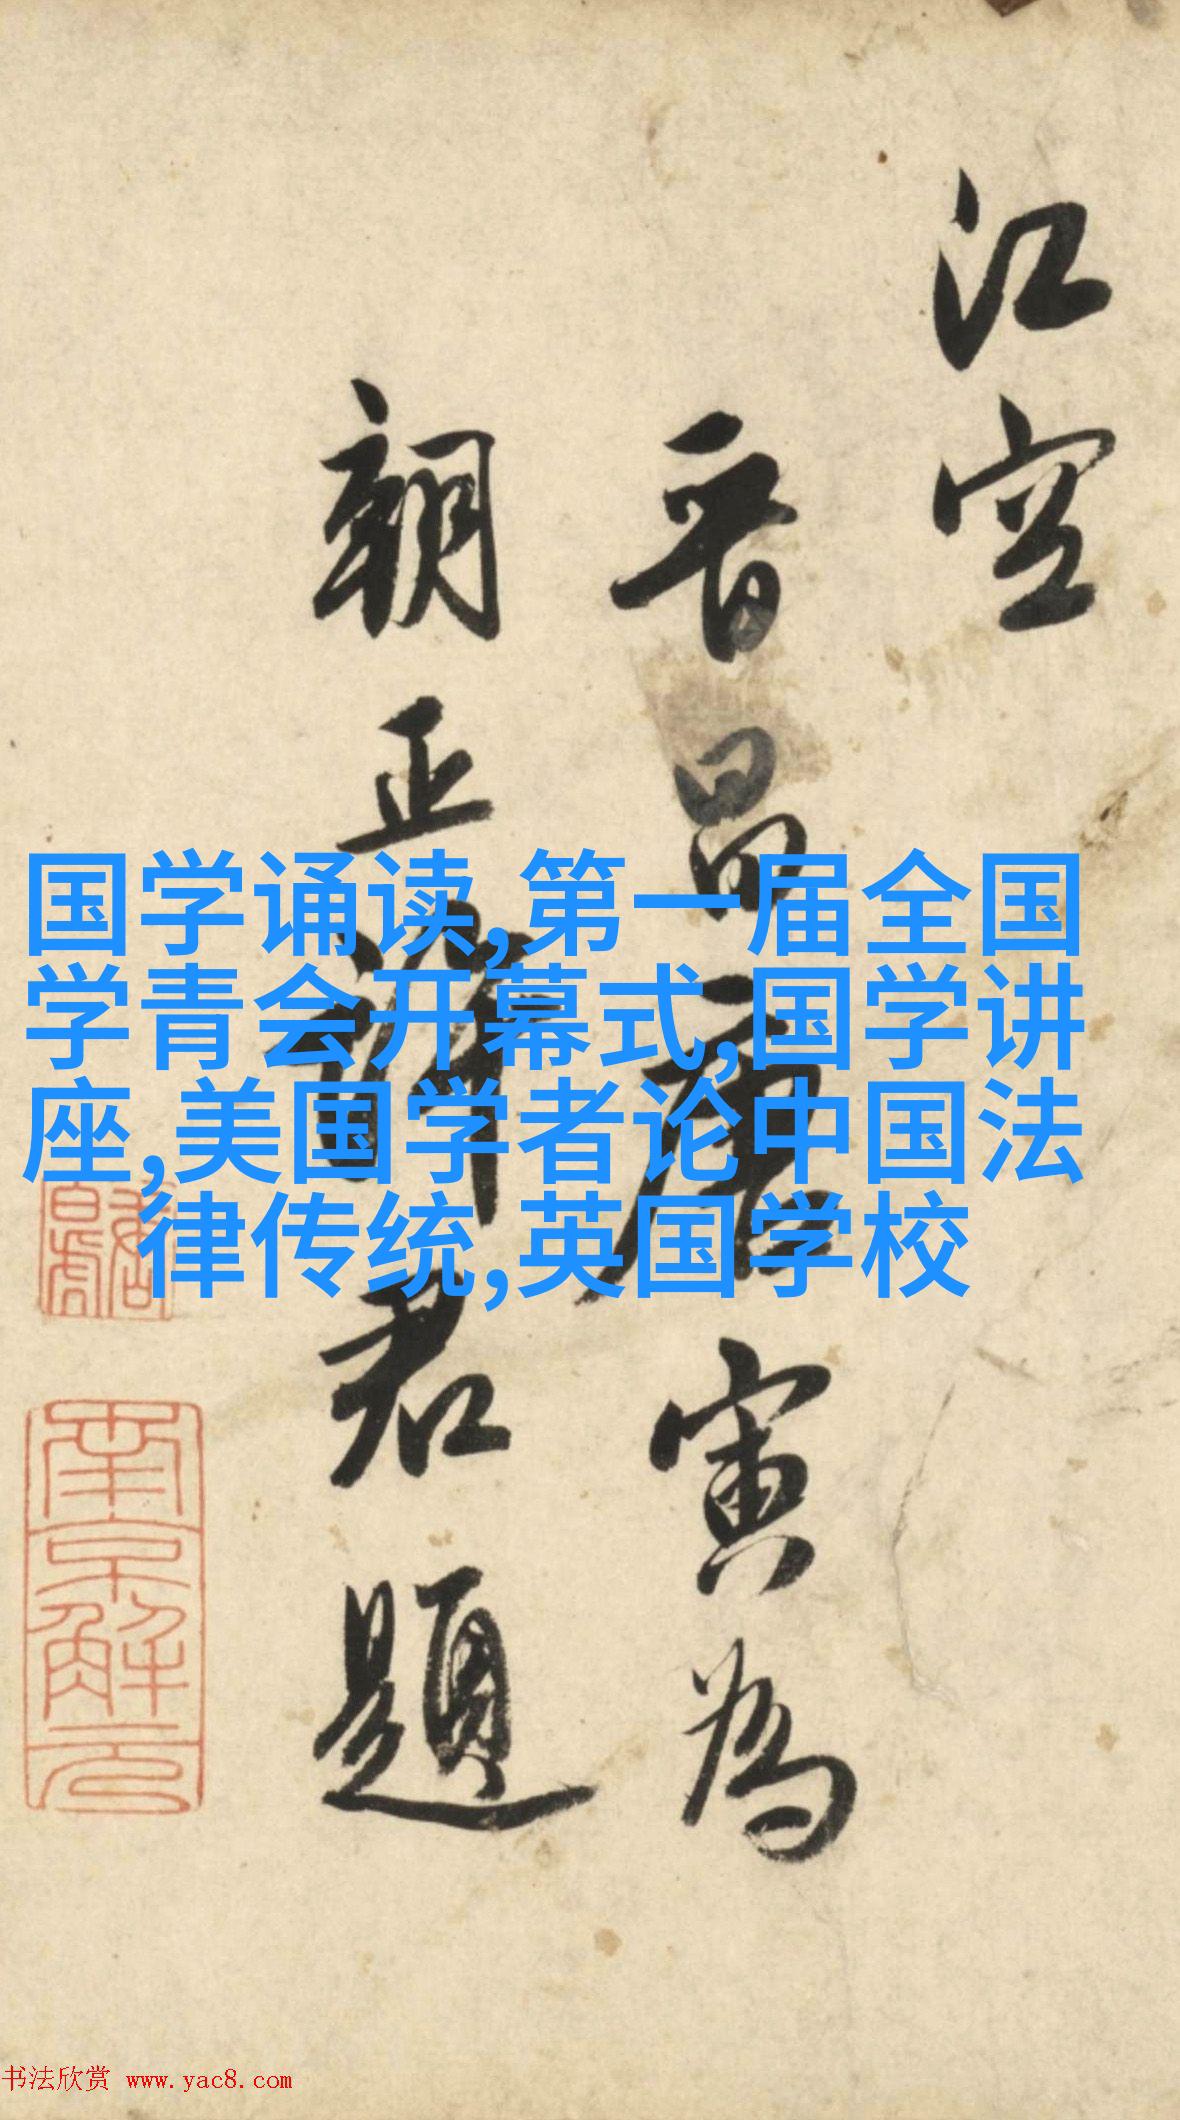 江空
晉昌唐寅為
朝正 君題
南京解元
国学诵读,第一届全国
学青会开幕式,国学讲
座,美国学者论中国法
律传统,英国学校
书法欣赏 www.yac8.com